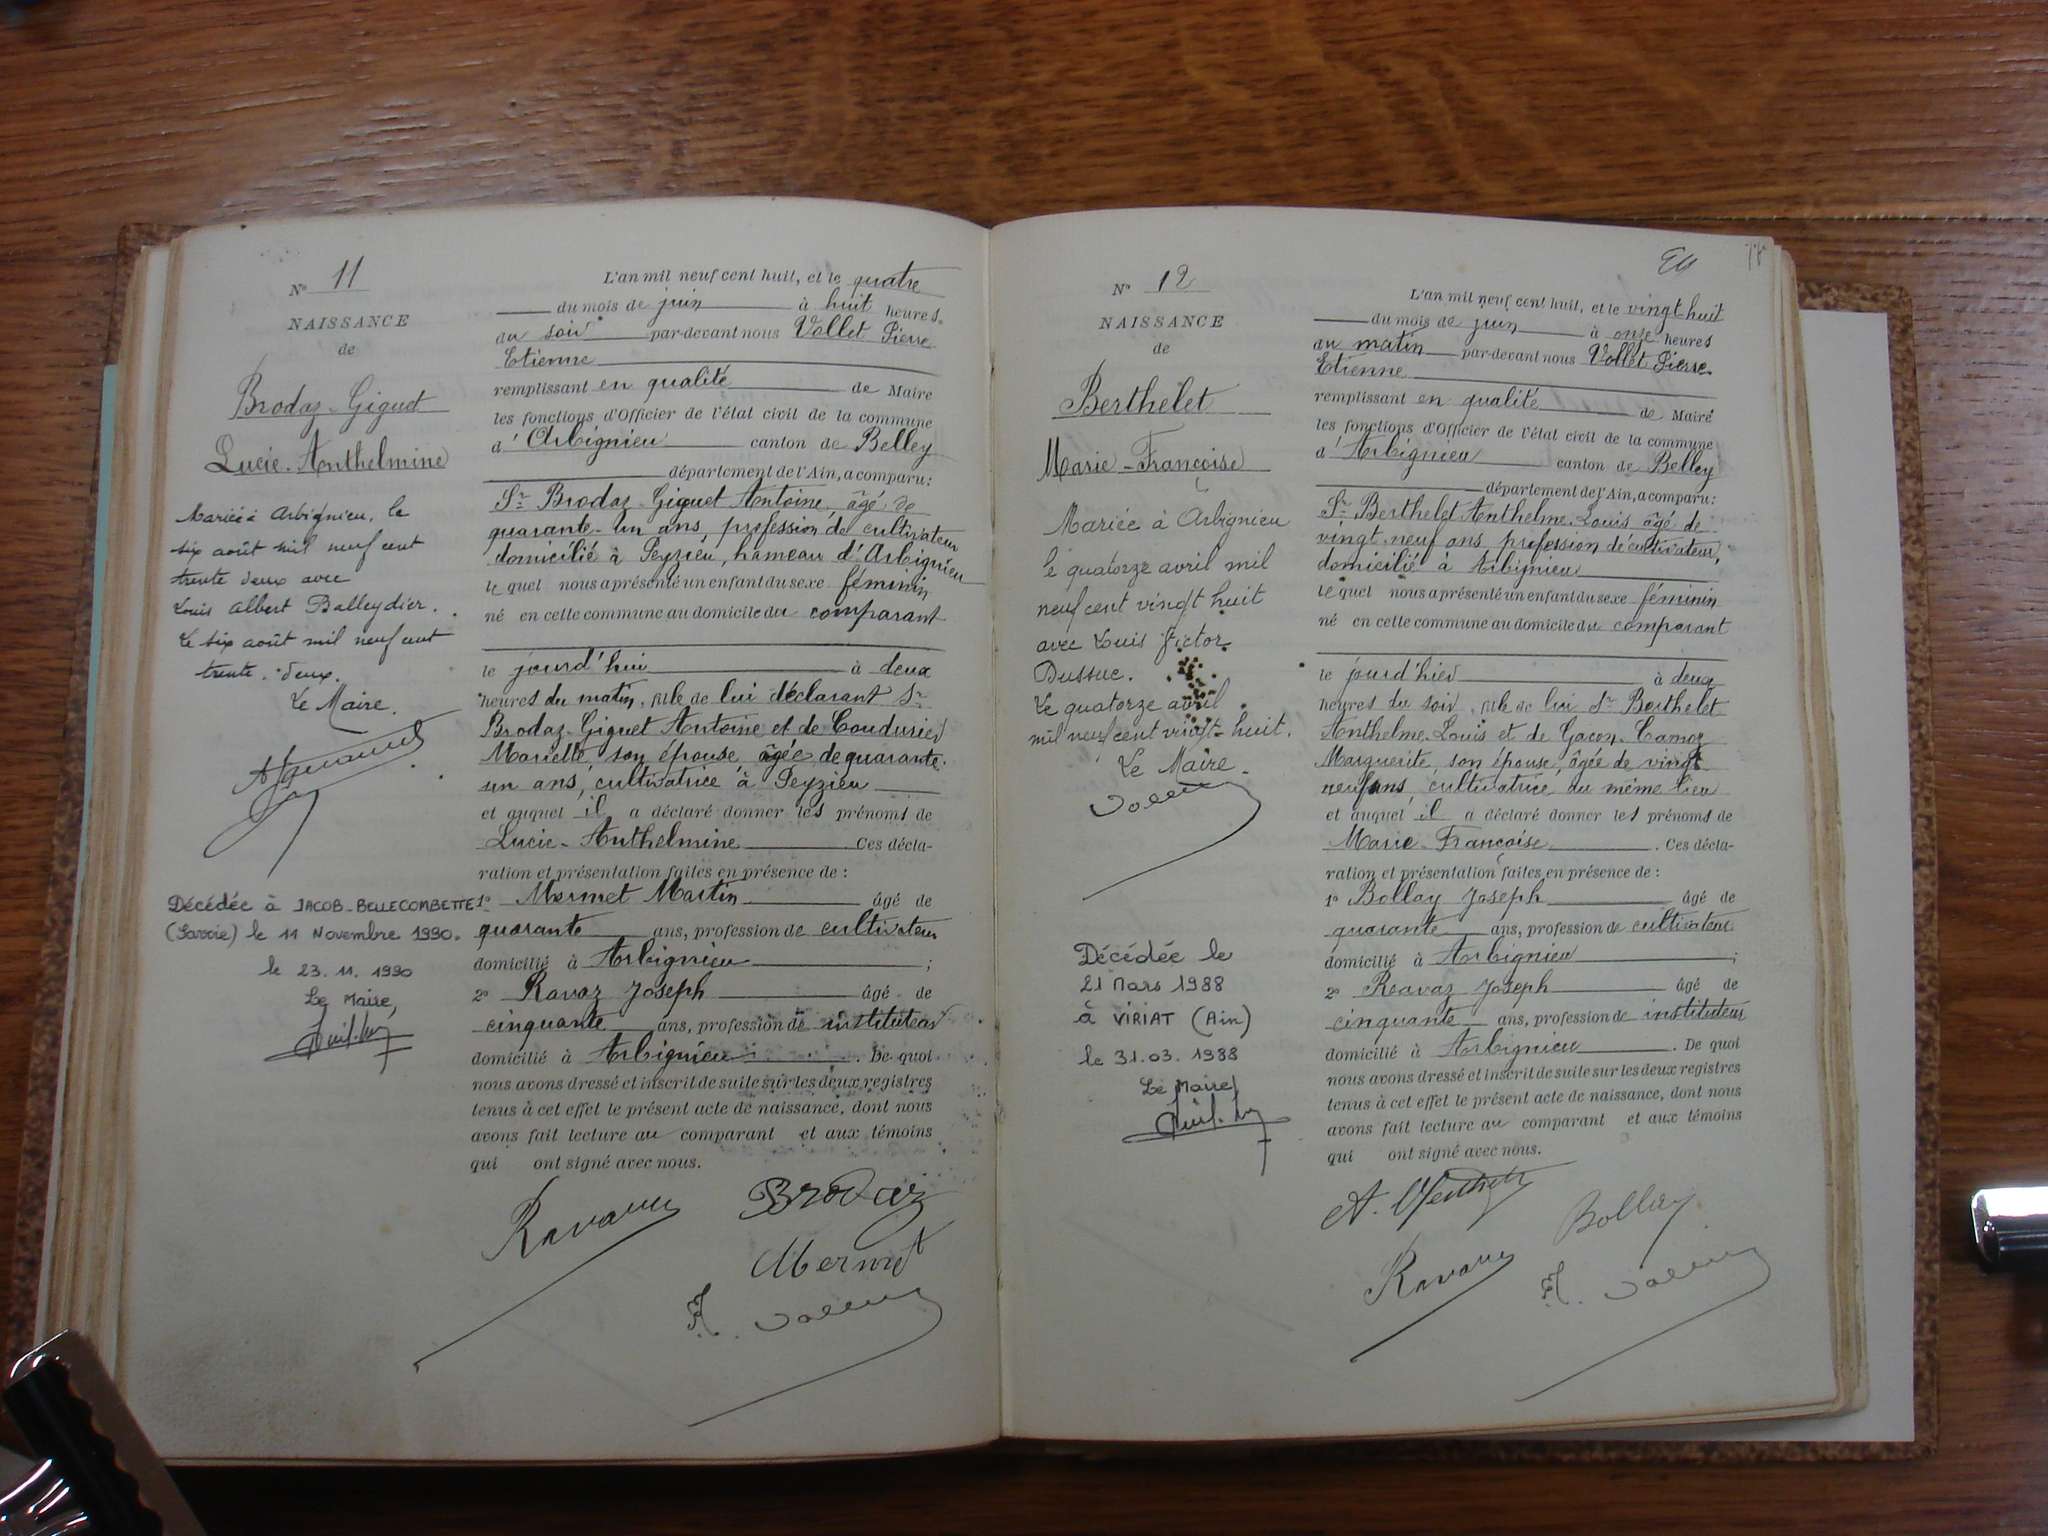 N° 11
NAISSANCE
de
Brodaz-Giguet
Lucie-Anthelmine
Mariée à Arbignieu, le
six août mil neuf cent
trente deux avec
Louis Albert Balleydier.
Le six août mil neuf cent
trente-deux.
Le Maire.
Décédée à JACOB-BELLECOMBETTE
(Savoie) le 11 Novembre 1990.
le 23.11.1990
Le Maire,
L'an mil neuf cent huit, et le quatre
du mois de juin à huit heures
du soir par-devant nous Vollet Pierre
Etienne
remplissant en qualité de Maire
les fonctions d'Officier de l'état civil de la commune
d'Arbignieu canton de Belley
département de l'Ain, a comparu:
Sr Brodaz-Giguet Antoine, âgé de
quarante-un ans, profession de cultivateur
domicilié à Peyzieu, hameau d'Arbignieu
lequel nous a présenté un enfant du sexe féminin
né en cette commune au domicile du comparant
le jourd'hui à deux
heures du matin, fille de lui déclarant Sr
Brodaz-Giguet Antoine et de Coudurier
Mariette, son épouse, âgée de quarante-
un ans, cultivatrice à Peyzieu
et auquel il a déclaré donner les prénoms de
Lucie-Anthelmine. Ces décla-
ration et présentation faites en présence de :
1° Mermet Martin âgé de
quarante ans, profession de cultivateur
domicilié à Arbignieu ;
2° Ravaz Joseph âgé de
cinquante ans, profession de instituteur
domicilié à Arbignieu. De quoi
nous avons dressé et inscrit de suite sur les deux registres
tenus à cet effet le présent acte de naissance, dont nous
avons fait lecture au comparant et aux témoins
qui ont signé avec nous.
Brodaz
Mermet
N° 12
NAISSANCE
de
Berthelet
Marie-Françoise
Mariée à Arbignieu
le quatorze avril mil
neuf cent vingt huit
avec Louis Victor
Dussuc.
Le quatorze avril
mil neuf cent vingt-huit.
Le Maire.
Décédée le
21 Mars 1988
à VIRIAT (Ain)
le 31.03.1988
Le Maire
78
L'an mil neuf cent huit, et le vingt-huit
du mois de juin à onze heures
du matin par-devant nous Vollet Pierre
Etienne
remplissant en qualité de Maire
les fonctions d'Officier de l'état civil de la commune
d'Arbignieu canton de Belley
département de l'Ain, a comparu:
Sr Berthelet Anthelme-Louis âgé de
vingt-neuf ans profession de cultivateur,
domicilié à Arbignieu
lequel nous a présenté un enfant du sexe féminin
né en cette commune au domicile du comparant
le jourd'hier à deux
heures du soir, fille de lui Sr Berthelet
Anthelme-Louis et de Gacon-Camoz
Marguerite, son épouse, âgée de vingt
neuf ans, cultivatrice du même lieu
et auquel il a déclaré donner les prénoms de
Marie-Françoise. Ces décla-
ration et présentation faites en présence de :
1° Bollay Joseph âgé de
quarante ans, profession de cultivateur
domicilié à Arbignieu ;
2° Ravaz Joseph âgé de
cinquante ans, profession de instituteur
domicilié à Arbignieu. De quoi
nous avons dressé et inscrit de suite sur les deux registres
tenus à cet effet le présent acte de naissance, dont nous
avons fait lecture au comparant et aux témoins
qui ont signé avec nous.
Bollay